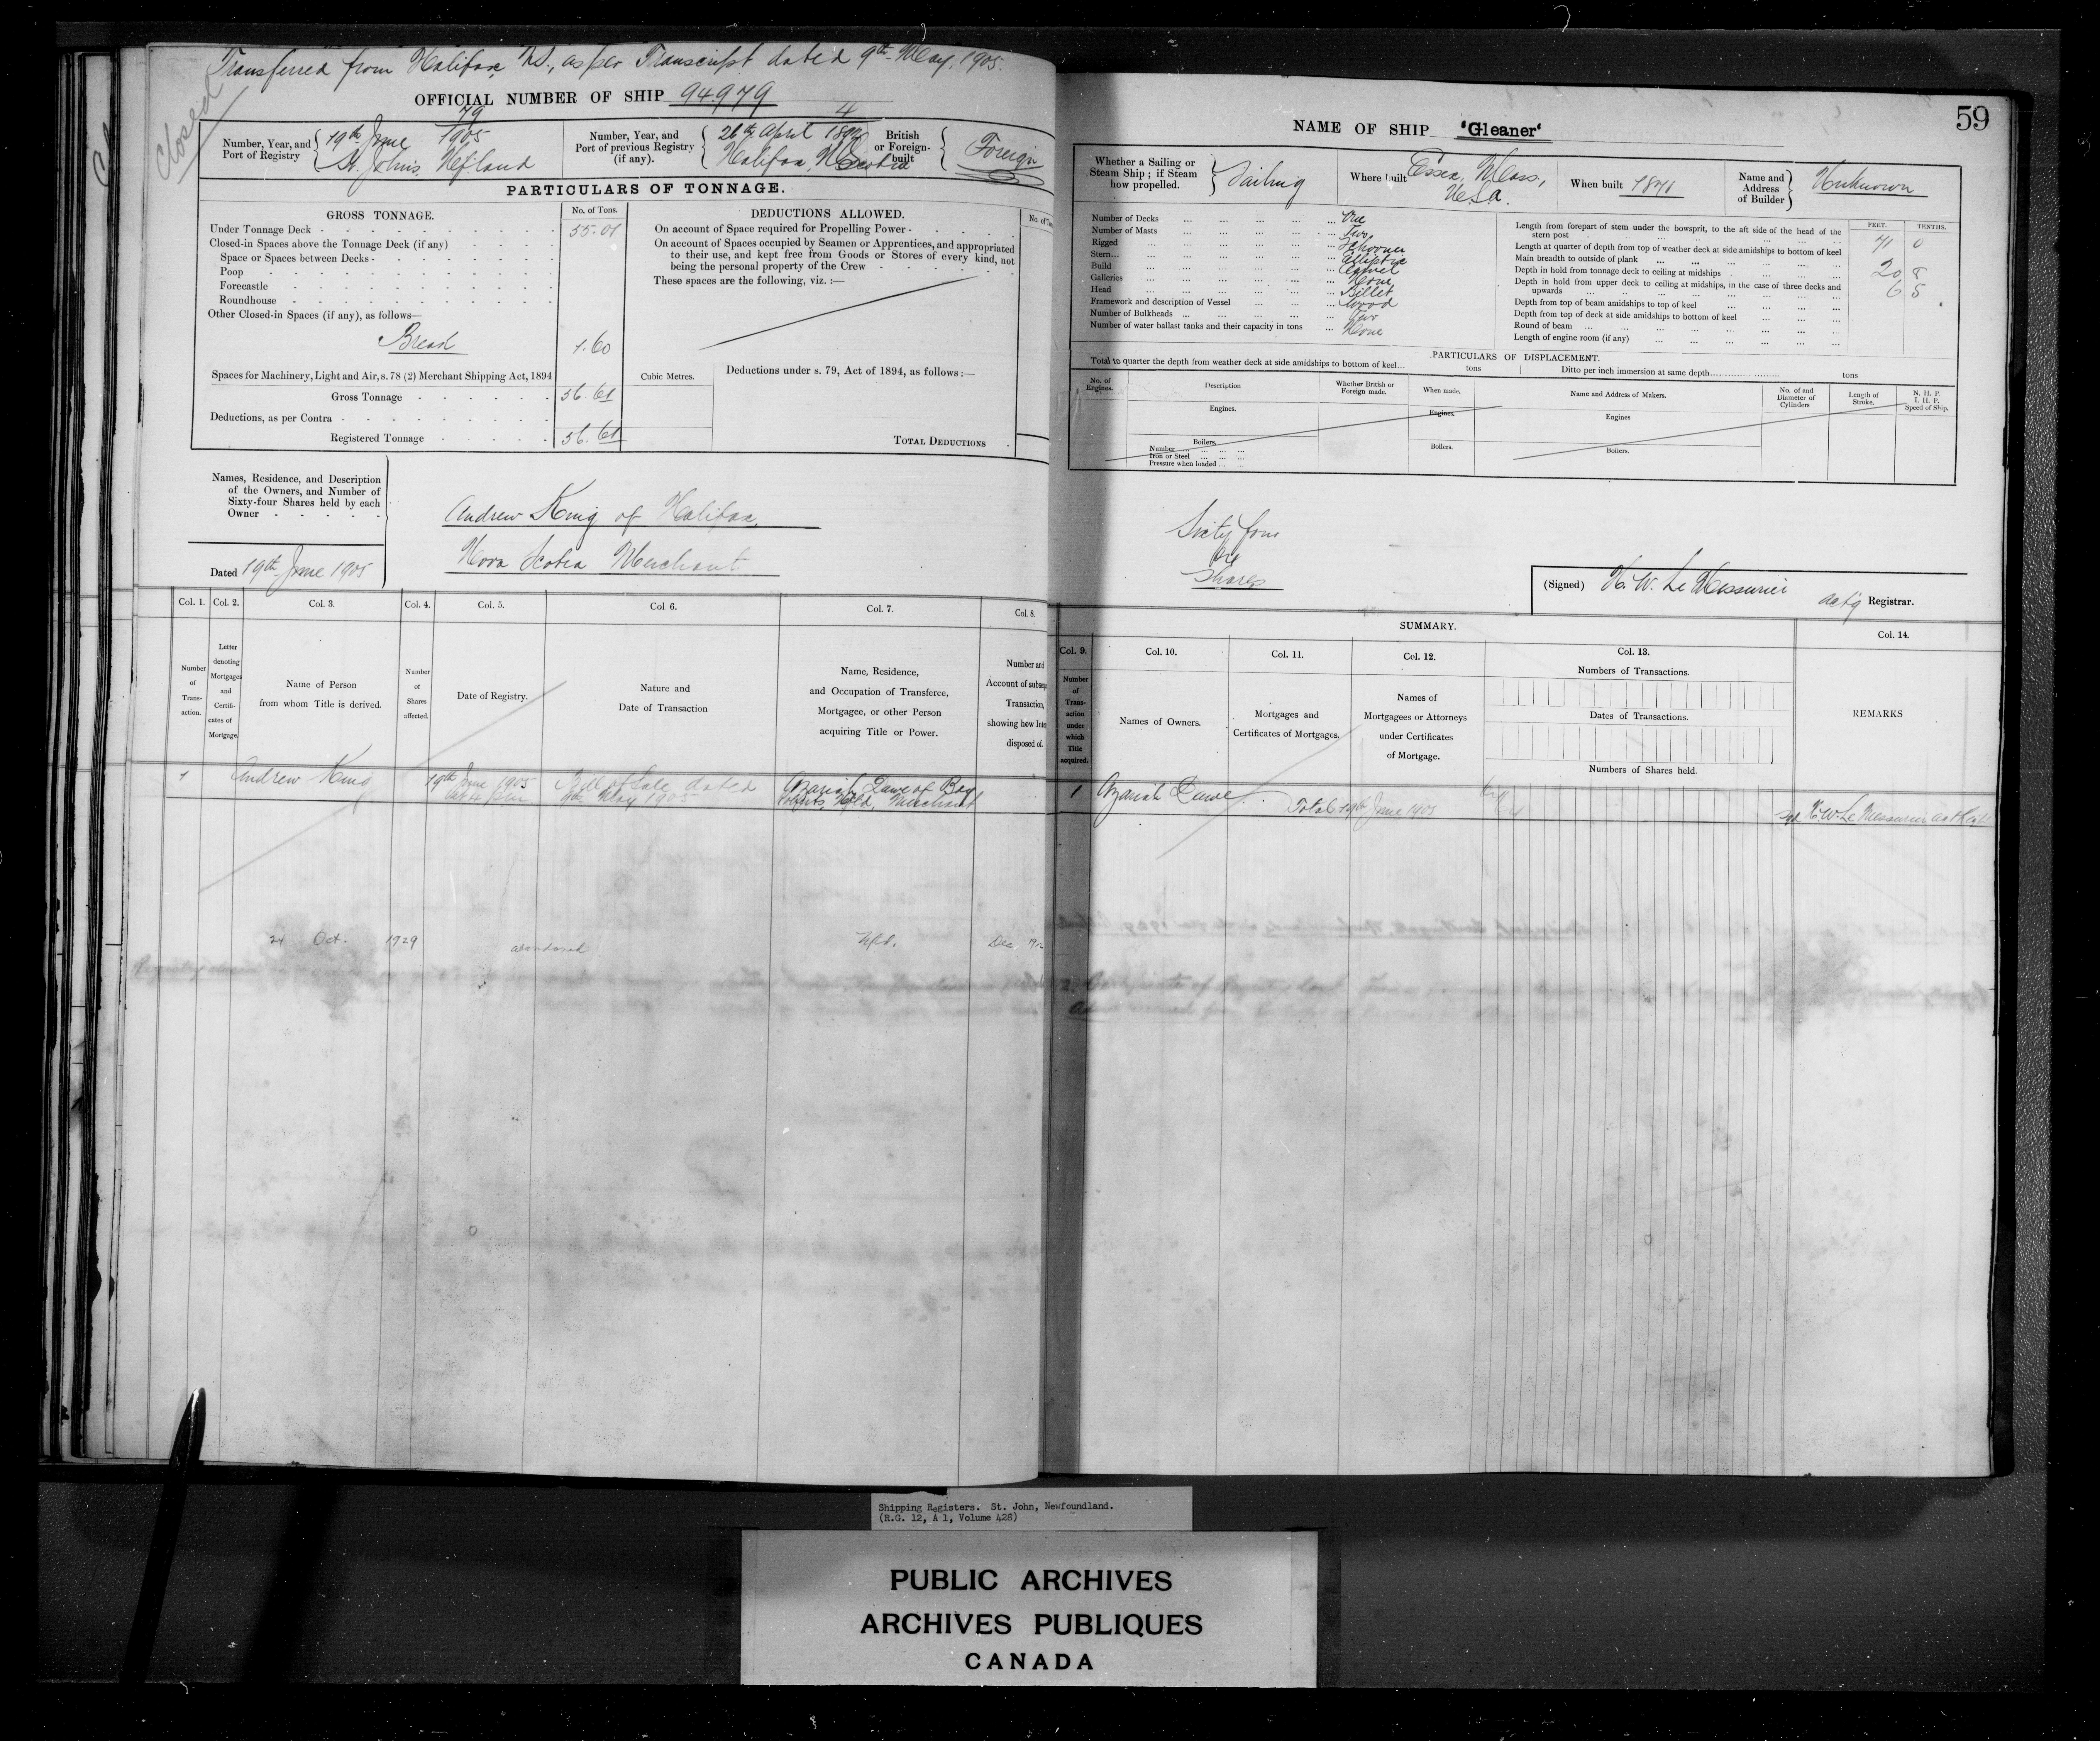 Transferred from Halifax, N.S., as per Transcript dated 9th May, 1905.
Closed
OFFICIAL NUMBER OF SHIP 94979
Number, Year, and Port of Registry
79
19th June 1905
St. John's, Nfland
Number, Year, and Port of previous Registry (if any).
4
26th April
Halifax, N. Scotia
British or Foreign-built
Foreign
PARTICULARS OF TONNAGE.
GROSS TONNAGE.
No. of Tons.
DEDUCTIONS ALLOWED.
No. of
Under Tonnage Deck 55.01
On account of Space required for Propelling Power
Closed-in Spaces above the Tonnage Deck (if any)
On account of Spaces occupied by Seamen or Apprentices, and appropriated
Space or Spaces between Decks
to their use, and kept free from Goods or Stores of every kind, not
Poop
being the personal property of the Crew
Forecastle
These spaces are the following, viz. :—
Roundhouse
Other Closed-in Spaces (if any), as follows—
Bread 1.60
Spaces for Machinery, Light and Air, s. 78 (2) Merchant Shipping Act, 1894
Cubic Metres.
Deductions under s. 79, Act of 1894, as follows :—
Gross Tonnage 56.61
Deductions, as per Contra
Registered Tonnage 56.61
TOTAL DEDUCTIONS
Names, Residence, and Description
of the Owners, and Number of
Sixty-four Shares held by each
Owner
Andrew King of Halifax,
Nova Scotia Merchant
Dated 19th June 1905
Col. 1.
Col. 2.
Col. 3.
Col. 4.
Col. 5.
Col. 6.
Col. 7.
Col. 8.
Number of Trans-action.
Letter denoting Mortgages and Certifi-cates of Mortgage.
Name of Person from whom Title is derived.
Number of Shares affected.
Date of Registry.
Nature and Date of Transaction
Name, Residence, and Occupation of Transferee, Mortgagee, or other Person acquiring Title or Power.
Number and Account of Transaction, showing how disposed of.
1
Andrew King
19th June 1905
Bill of Sale dated
May 1905
Azariah Dawe of Bay
Roberts, Nfld, Merchant
24 Oct. 1929
abandoned
Nfld.
Dec.
59
NAME OF SHIP 'Gleaner'
Whether a Sailing or Steam Ship ; if Steam how propelled.
Sailing
Where built
Essex, Mass,
U.S.A.
When built
Name and Address of Builder
Unknown
Number of Decks One
Number of Masts Two
Rigged Schooner
Stern Elliptic
Build Carvel
Galleries None
Head Billet
Framework and description of Vessel Wood
Number of Bulkheads Two
Number of water ballast tanks and their capacity in tons None
FEET.
TENTHS.
Length from forepart of stem under the bowsprit, to the aft side of the head of the
stern post 71 0
Length at quarter of depth from top of weather deck at side amidships to bottom of keel
Main breadth to outside of plank 20 8
Depth in hold from tonnage deck to ceiling at midships 6 8
Depth in hold from upper deck to ceiling at midships, in the case of three decks and
upwards
Depth from top of beam amidships to top of keel
Depth from top of deck at side amidships to bottom of keel
Round of beam
Length of engine room (if any)
PARTICULARS OF DISPLACEMENT.
Total to quarter the depth from weather deck at side amidships to bottom of keel tons
Ditto per inch immersion at same depth tons
No. of Engines.
Description
Whether British or Foreign made.
When made.
Name and Address of Makers.
No. of and Diameter of Cylinders
Length of Stroke.
N. H. P.
I. H. P.
Speed of Ship.
Engines.
Engines.
Engines
Boilers.
Number
Iron or Steel
Pressure when loaded
Boilers.
Boilers.
Sixty four
Shares
(Signed) H. W. Le Messurier
act'g Registrar.
SUMMARY.
Col. 9.
Col. 10.
Col. 11.
Col. 12.
Col. 13.
Col. 14.
Number of Trans-action under which Title acquired.
Names of Owners.
Mortgages and Certificates of Mortgages.
Names of Mortgagees or Attorneys under Certificates of Mortgage.
Numbers of Transactions.
Dates of Transactions.
Numbers of Shares held.
REMARKS
1
Azariah Dawe
Total 19th June 1905
64
sgd H. W. Le Messurier
Shipping Registers. St. John, Newfoundland.
(R.G. 12, A 1, Volume 428)
PUBLIC ARCHIVES
ARCHIVES PUBLIQUES
CANADA